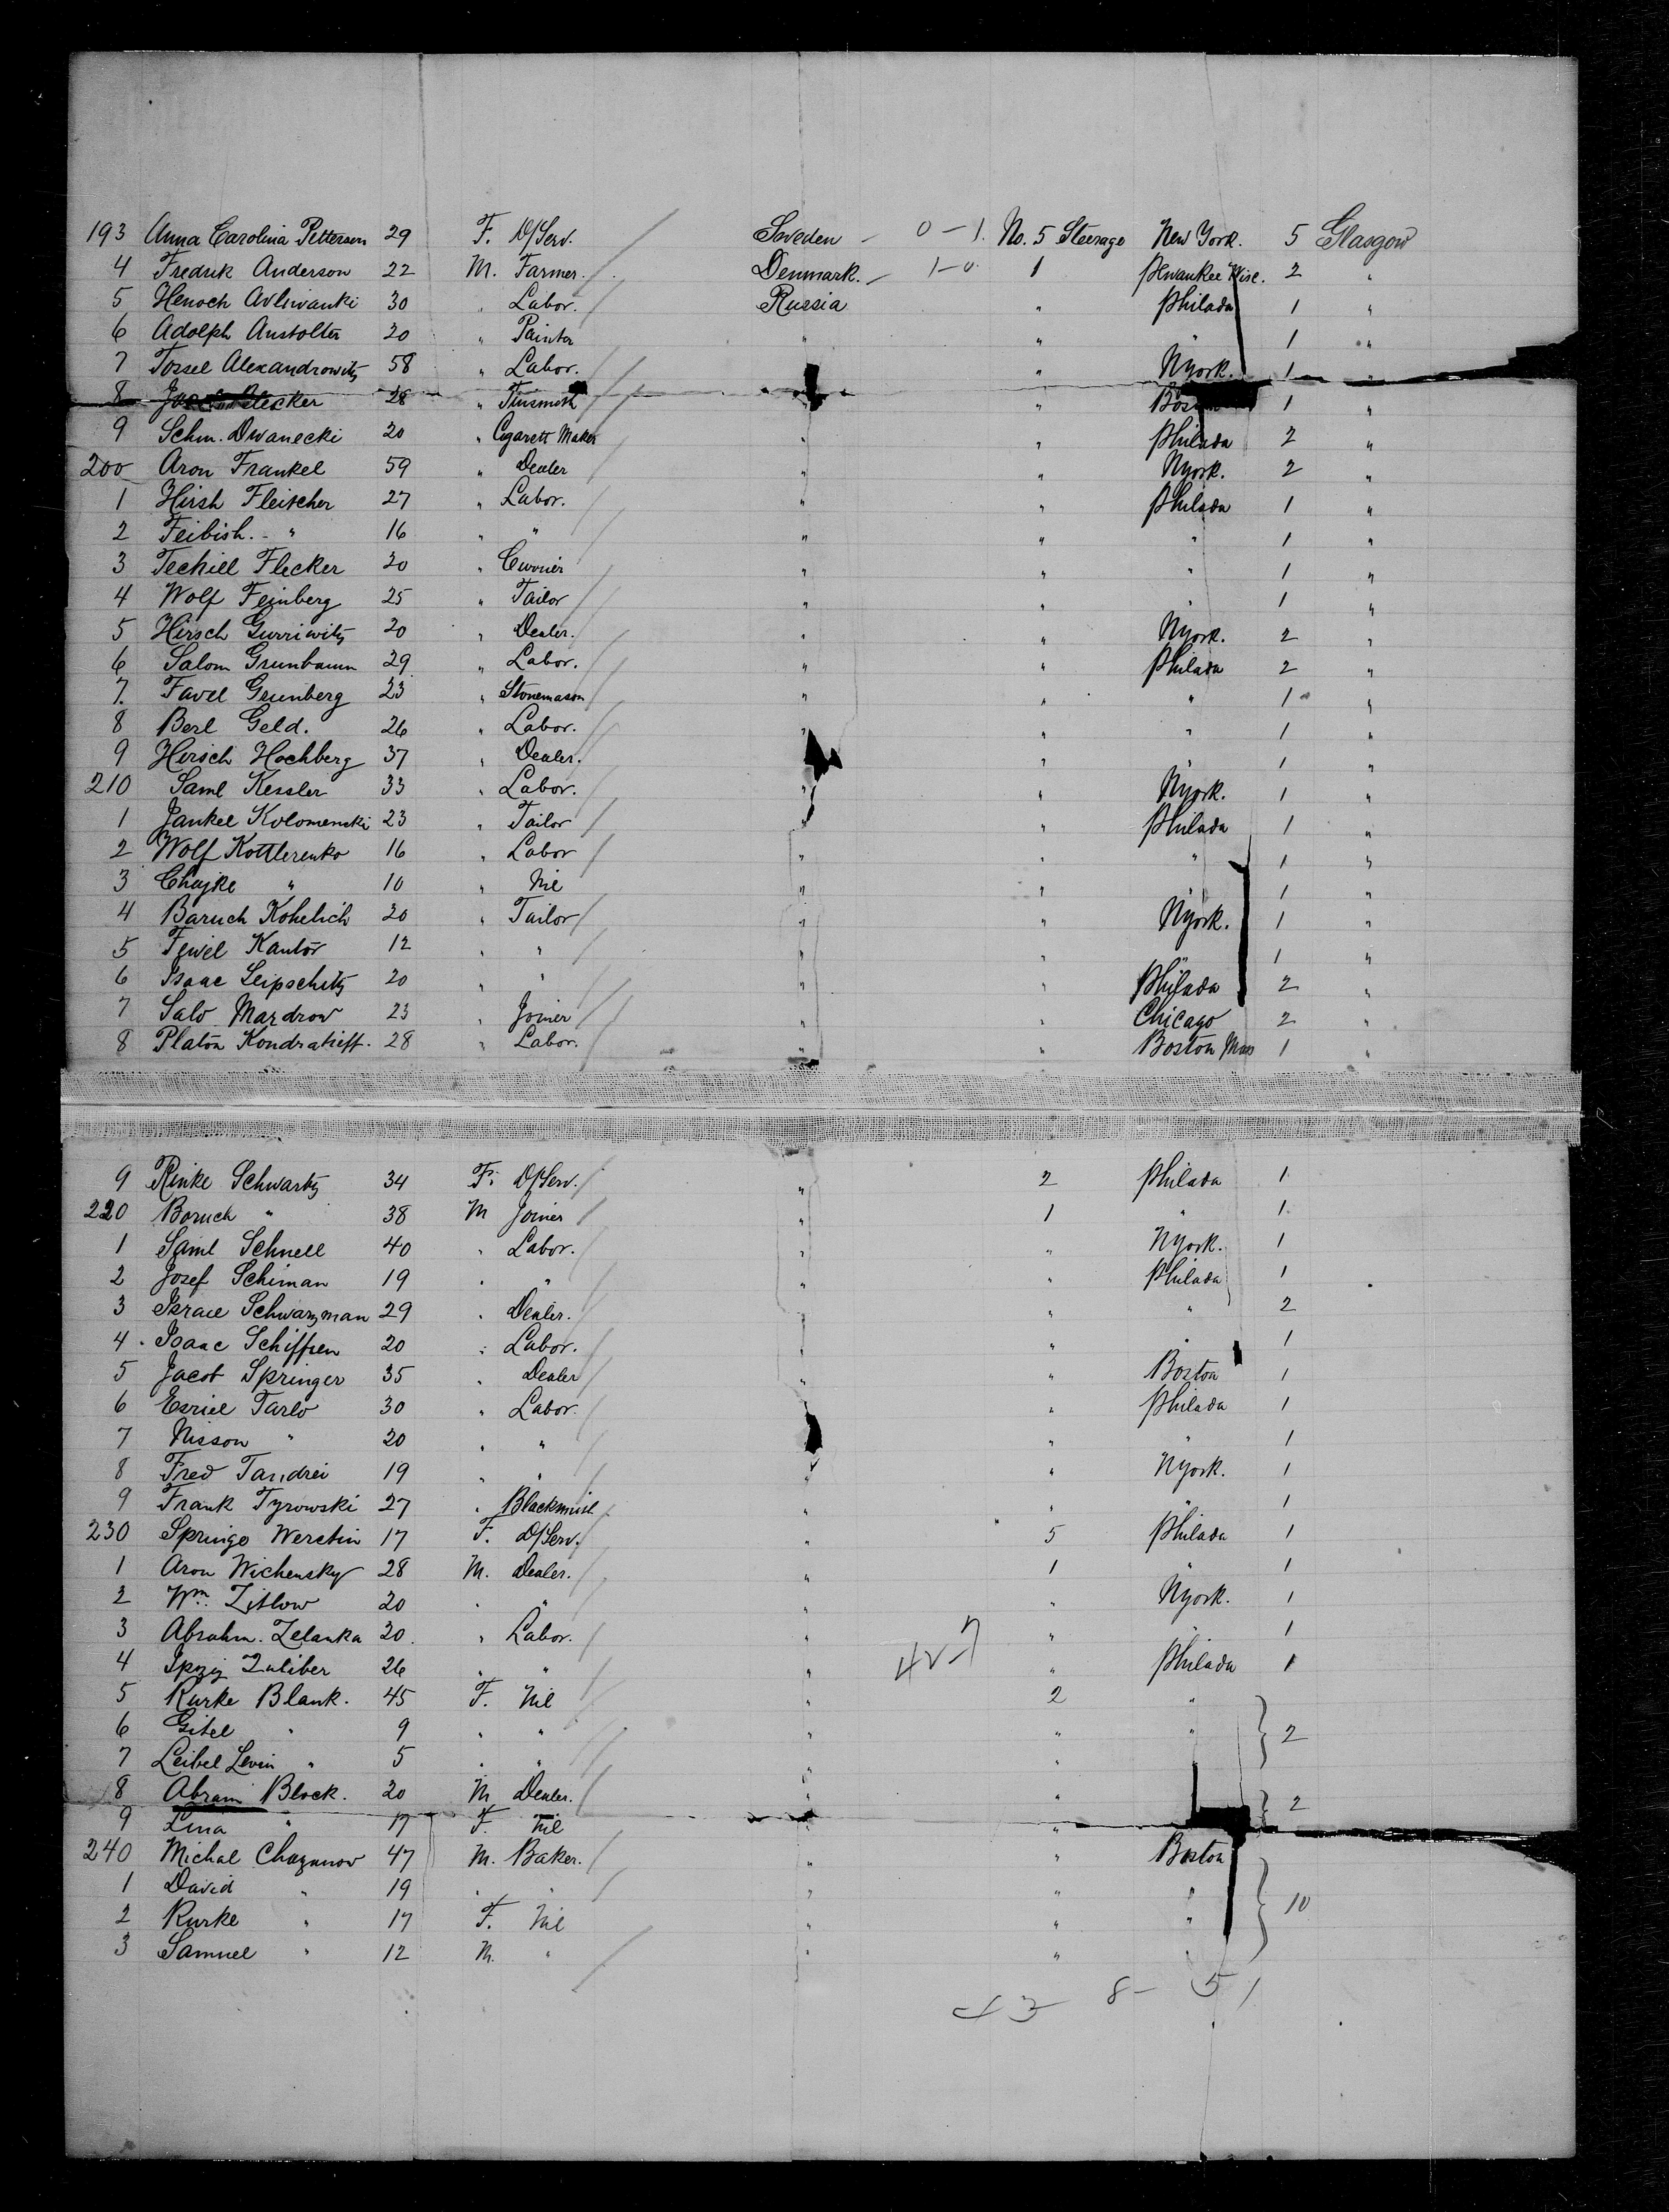 193 Anna Carolina Pettersen 29 F. D/Serv. Sweden — 0 – 1. No. 5 Steerage New York. 5 Glasgow
4 Fredrik Anderson 22 M. Farmer. Denmark. — 1 – 0. 1 Pewaukee Wisc. 2 "
5 Henoch 30 " Labor. Russia " Philada 1 "
6 Adolph Anstolter 20 " Painter " " " 1 "
7 Tossel Alexandrowitz 58 " Labor. " " NYork. 1 "
8 28 " Tinsmith " " Boston 1 "
9 Schm. Dwanecki 20 " Cigarett Maker " " Philada 2 "
200 Aron Frankel 59 " Dealer " " NYork. 2 "
1 Hirsh Fleischer 27 " Labor. " " Philada 1 "
2 Feibish. " 16 " " " " " 1 "
3 Techiel Flecker 20 " " " " 1 "
4 Wolf Feinberg 25 " Tailor " " " 1 "
5 Hirsch Gurriwitz 20 " Dealer. " " NYork. 2 "
6 Salom Grunbaum 29 " Labor. " " Philada 2 "
7. Favel Grunberg 23 " Stonemason " " " 1 "
8 Berl Geld. 26 " Labor. " " " 1 "
9 Hirsch Hochberg 37 " Dealer. " " 1 "
210 Saml Kessler 33 " Labor. " " NYork. 1 "
1 Jankel Kolomenski 23 " Tailor " " Philada 1 "
2 Wolf Kottlerenko 16 " Labor " " " 1 "
3 Chajke " 10 " Nil " " " 1 "
4 Baruch Kohelich 20 " Tailor " " NYork. 1 "
5 Fewel Kantor 12 " " " " " 1 "
6 Isaac Leipschitz 20 " " " " Philada 2 "
7 Salo Mardrow 23 " Joiner " " Chicago 2 "
8 Platon Kondratieff. 28 " Labor. " " Boston Mass 1 "
9 Rinke Schwartz 34 F. D/Serv. " 2 Philada 1
220 Boruch " 38 M Joiner " 1 " 1
1 Saml Schnell 40 " Labor. " " NYork. 1
2 Josef Schiman 19 " " " " Philada 1
3 Israel Schwarzman 29 " Dealer. " " " 2
4 Isaac Schiffren 20 " Labor. " " " 1
5 Jacob Springer 35 " Dealer " " Boston 1
6 Esriel Tarlo 30 " Labor. " " Philada 1
7 Nisson " 20 " " " " " 1
8 Fred Tandrei 19 " " " " NYork. 1
9 Frank Tyrowski 27 " " " " 1
230 Springe Werstin 17 F. D/Serv. " 5 Philada 1
1 Aron Wichensky 28 M. Dealer. " 1 " 1
2 Wm. Zitlow 20 " " " " NYork. 1
3 Abrahm. Zelanka 20. " Labor. " " " 1
4 Zuliber 26 " " " " Philada 1
5 Rurke Blank. 45 F. Nil " 2 "
6 Gitel " 9 " " " " " 2
7 Leibel Levin " 5 " " " "
8 Abram Block. 20 M Dealer. " " 2
9 Lina " 17 F. Nil " "
240 Michal Chazanow 47 M. Baker. " " Boston
1 David " 19 " " " " "
2 Rurke " 17 F. Nil " " " 10
3 Samuel " 12 M. " " " "
43 8 – 51